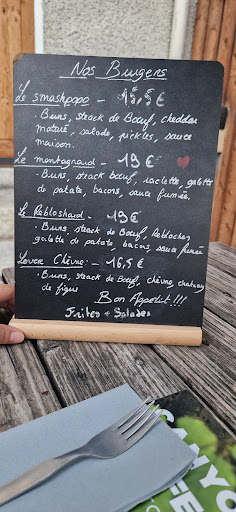 Nos Burgers
Le smashpopo - 15,5€
• Buns, steack de Bœuf, cheddar
maturé, salade, pickles, sauce
maison.
Le montagnard - 19€
• Buns, steack bœuf, raclette, galette
de patate, bacons, sauce fumée.
Le Rebloshard - 19€
• Buns, steack de Bœuf, Reblochon
galette de patate, bacon, sauce fumée
Lover Chèvre - 16,5€
• Buns, steack de Bœuf, chèvre, chutney
de figues
Bon Appetit !!!
Frites + Salades